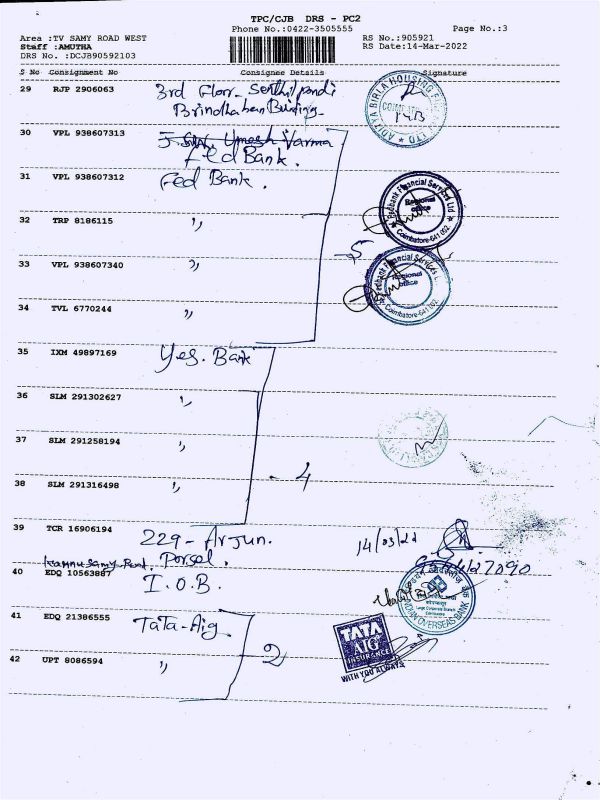 TPC/CJB DRS - PC2
Phone No.:0422-3505555
Page No.:3
Area :TV SAMY ROAD WEST
Staff :AMUTHA
DRS No. :DCJB90592103
RS No.:905921
RS Date:14-Mar-2022
S No Consignment No Consignee Details Signature
29 RJP 2906063 3rd Floor
Brindhaban Building
ADITYA BIRLA HOUSING
30 VPL 938607313 Umesh Varma
Fed Bank.
31 VPL 938607312 Fed Bank.
Fedbank Financial Services Ltd
Regional Office
Coimbatore-641 002.
32 TRP 8186115 "
5
33 VPL 938607340 "
Fedbank Financial Services
Regional Office
Coimbatore-641 002.
34 TVL 6770244 "
35 IXM 49897169 Yes. Bank
36 SLM 291302627 "
37 SLM 291258194 "
38 SLM 291316498 "
- 4
39 TCR 16906194 229 - Arjun. 14/03/22
40 EDQ 10563887 I.O.B.
INDIAN OVERSEAS BANK
41 EDQ 21386555 TaTa-Aig
TATA
AIG
INSURANCE
WITH YOU ALWAYS
42 UPT 8086594 "
2